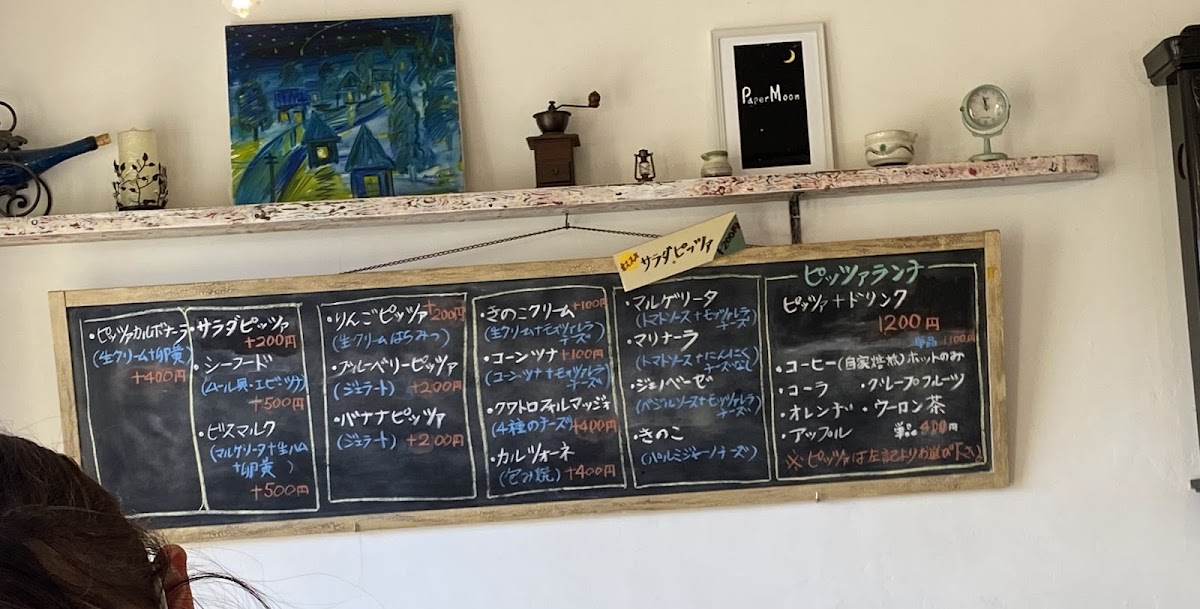 PaperMoon
サラダピッツァ
・ピッツァカルボナーラ
(生クリーム+卵黄)
+400円
・サラダピッツァ
+200円
・シーフード
(ムール貝・エビ・ツナ)
+500円
・ビスマルク
(マルゲリータ+生ハム
+卵黄)
+500円
・りんごピッツァ+200円
(生クリームはちみつ)
・ブルーベリーピッツァ
(ジェラート) +200円
・バナナピッツァ
(ジェラート) +200円
・きのこクリーム+100円
(生クリーム+モッツァレラ
チーズ)
・コーンツナ +100円
(コーンツナ+モッツァレラ
チーズ)
・クワトロフォルマッジォ
(4種のチーズ) +400円
・カルツォーネ
(包み焼) +400円
・マルゲリータ
(トマトソース+モッツァレラ
チーズ)
・マリナーラ
(トマトソース+にんにく
チーズなし)
・ジェノベーゼ
(バジルソース+モッツァレラ
チーズ)
・きのこ
(パルミジャーノチーズ)
ピッツァランチ
ピッツァ+ドリンク
1200円
単品 1100円
・コーヒー(自家焙煎)ホットのみ
・コーラ ・グレープフルーツ
・オレンジ ・ウーロン茶
・アップル 単品400円
※ピッツァは左記よりお選び下さい